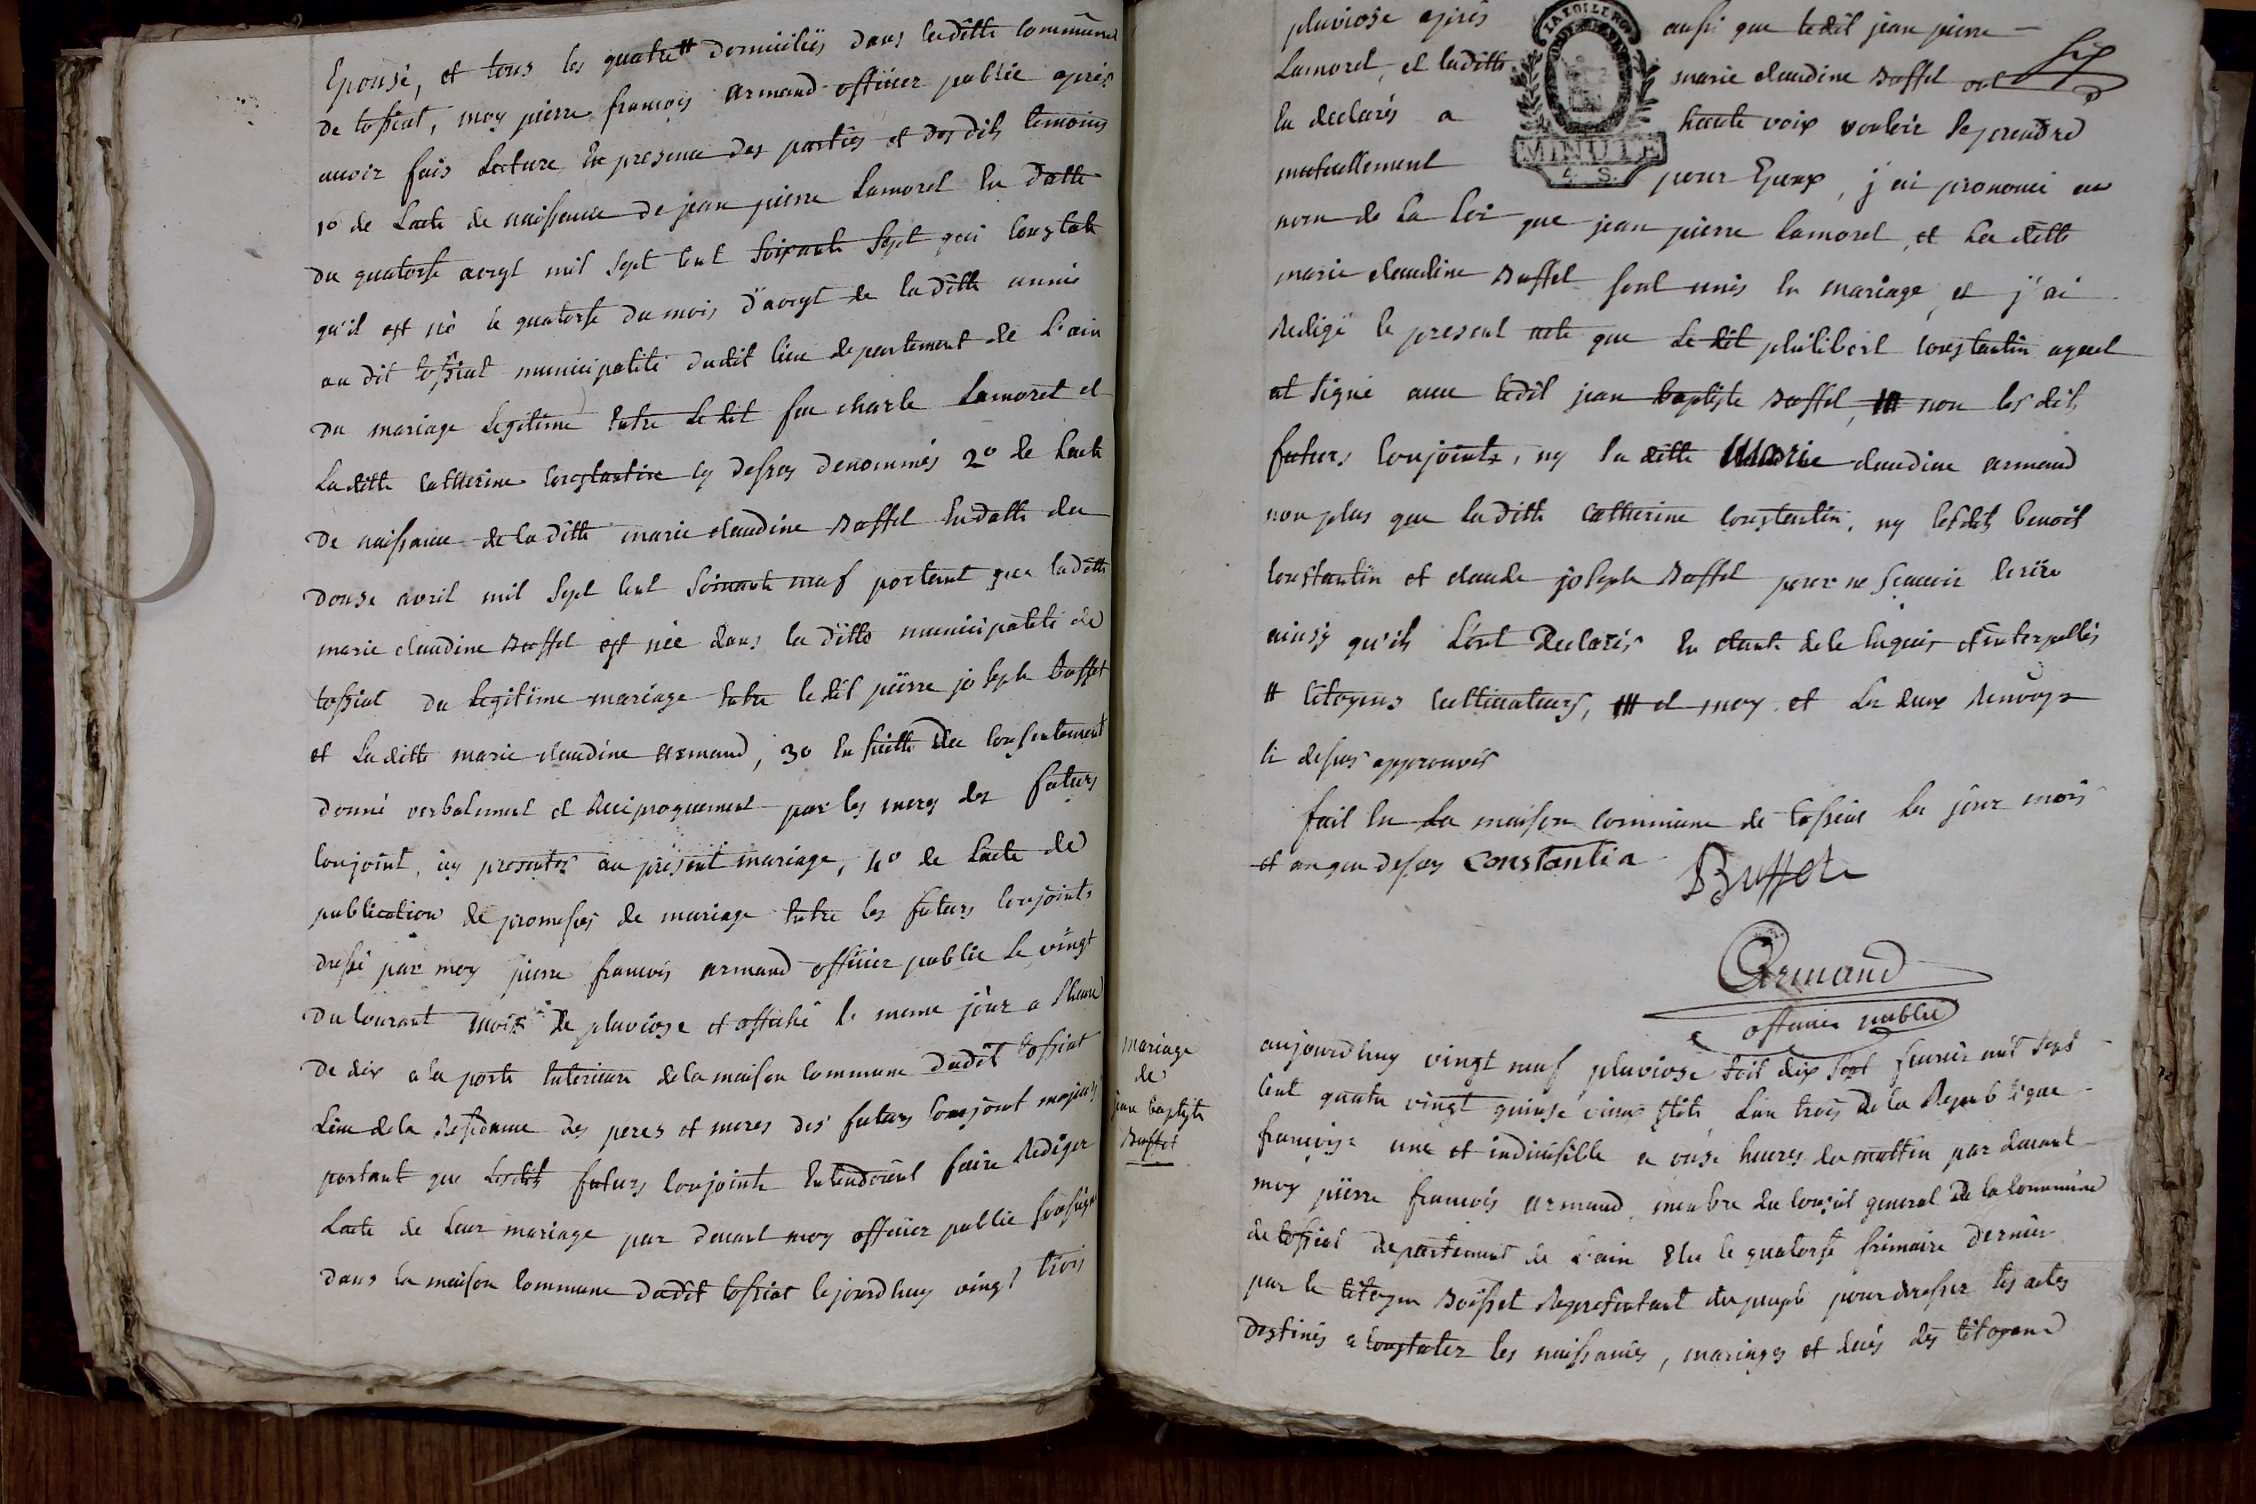 Epouse, et tous les quatre # domiciliés dans ladette commune
de tossiat, moy pierre françois armand officier public après
avoir fais lecture en presence des parties et des dits temoins
1º de lacte de naissance de jean pierre Lamorel en datte
du quatorse avryl mil sept cent soixante sept qui constate
qu'il est né le quatorse du mois d'avryl de ladette année
au dit tossiat municipalité dudit lieu departement de L'ain
du mariage legitime entre le dit feu charle Lamorel et
Ladette catherine constantin cy desseu denommés 2º de lacte
de naissance de ladette marie claudine Buffet en datte du
douse avril mil sept cent soixante neuf portant que ladette
marie claudine Buffet est née dans la ditte municipalité de
tossiat du legitime mariage entre le dit pierre joseph Buffet
et Ladette marie claudine armand, 3º en suitte du consentement
donné verbalement et reciproquement par les meres des futurs
conjoint, icy presentes au présent mariage, 4º de lacte de
publication de promesses de mariage entre les futurs conjoints
dressé par moy pierre francois armand officier public le vingt
du courant mois de pluviose et affiché le meme jour a l'heure
de dix a la porte exterieure de la maison commune dudit tossiat
Lieu de la residence des peres et meres des futurs conjoint majeurs
portant que lesdits futurs conjoints entendoient faire rediger
Lacte de leur mariage par devant moy officier public soussigné
dans la maison commune dudit tossiat cejourdhuy vingt trois
pluviose après aussi que ledit jean pierre
Lamorel, et ladette marie claudine Buffet ont
eu declarés a haute voix vouloir se prendre
mutuellement pour Epoux, j'ai prononcé au
MINUTE
nom de la loi que jean pierre Lamorel, et la ditte
marie claudine Buffet sont unis en mariage, et j'ai
redigé le present acte que le dit philibert constantin agent
at signé avec ledit jean baptiste Buffet, non les dits
futurs conjoints, ny la ditte Marie claudine armand
non plus que ladette catherine constantin, ny lesdits benoit
constantin et claude joseph Buffet pour ne scavoir ecrire
ainsy qu'ils l'ont declarés en étant de ce enquis et interpellés
# citoyens cultivateurs, et moy et les deux renvoys
ci dessus approuvés
fait en la maison commune de tossiat les jour mois
et an que dessus constantin
Buffet
Armand
officier public
mariage
de
jean baptiste
Buffet
aujourdhuy vingt neuf pluviose soit dix sept fevrier mil sept
cent quatre vingt quinse vieux stile, l'an trois de la Republique
françoise une et indivisible a onse heures du mattin par devant
moy pierre francois armand, membre du conseil general de la commune
de tossiat departement de l'ain Elu le quatorse frimaire dernier
par le citoyen Boisset Representant du peuple pour dresser les actes
destinés a constater les naissances, mariages et décés des citoyens